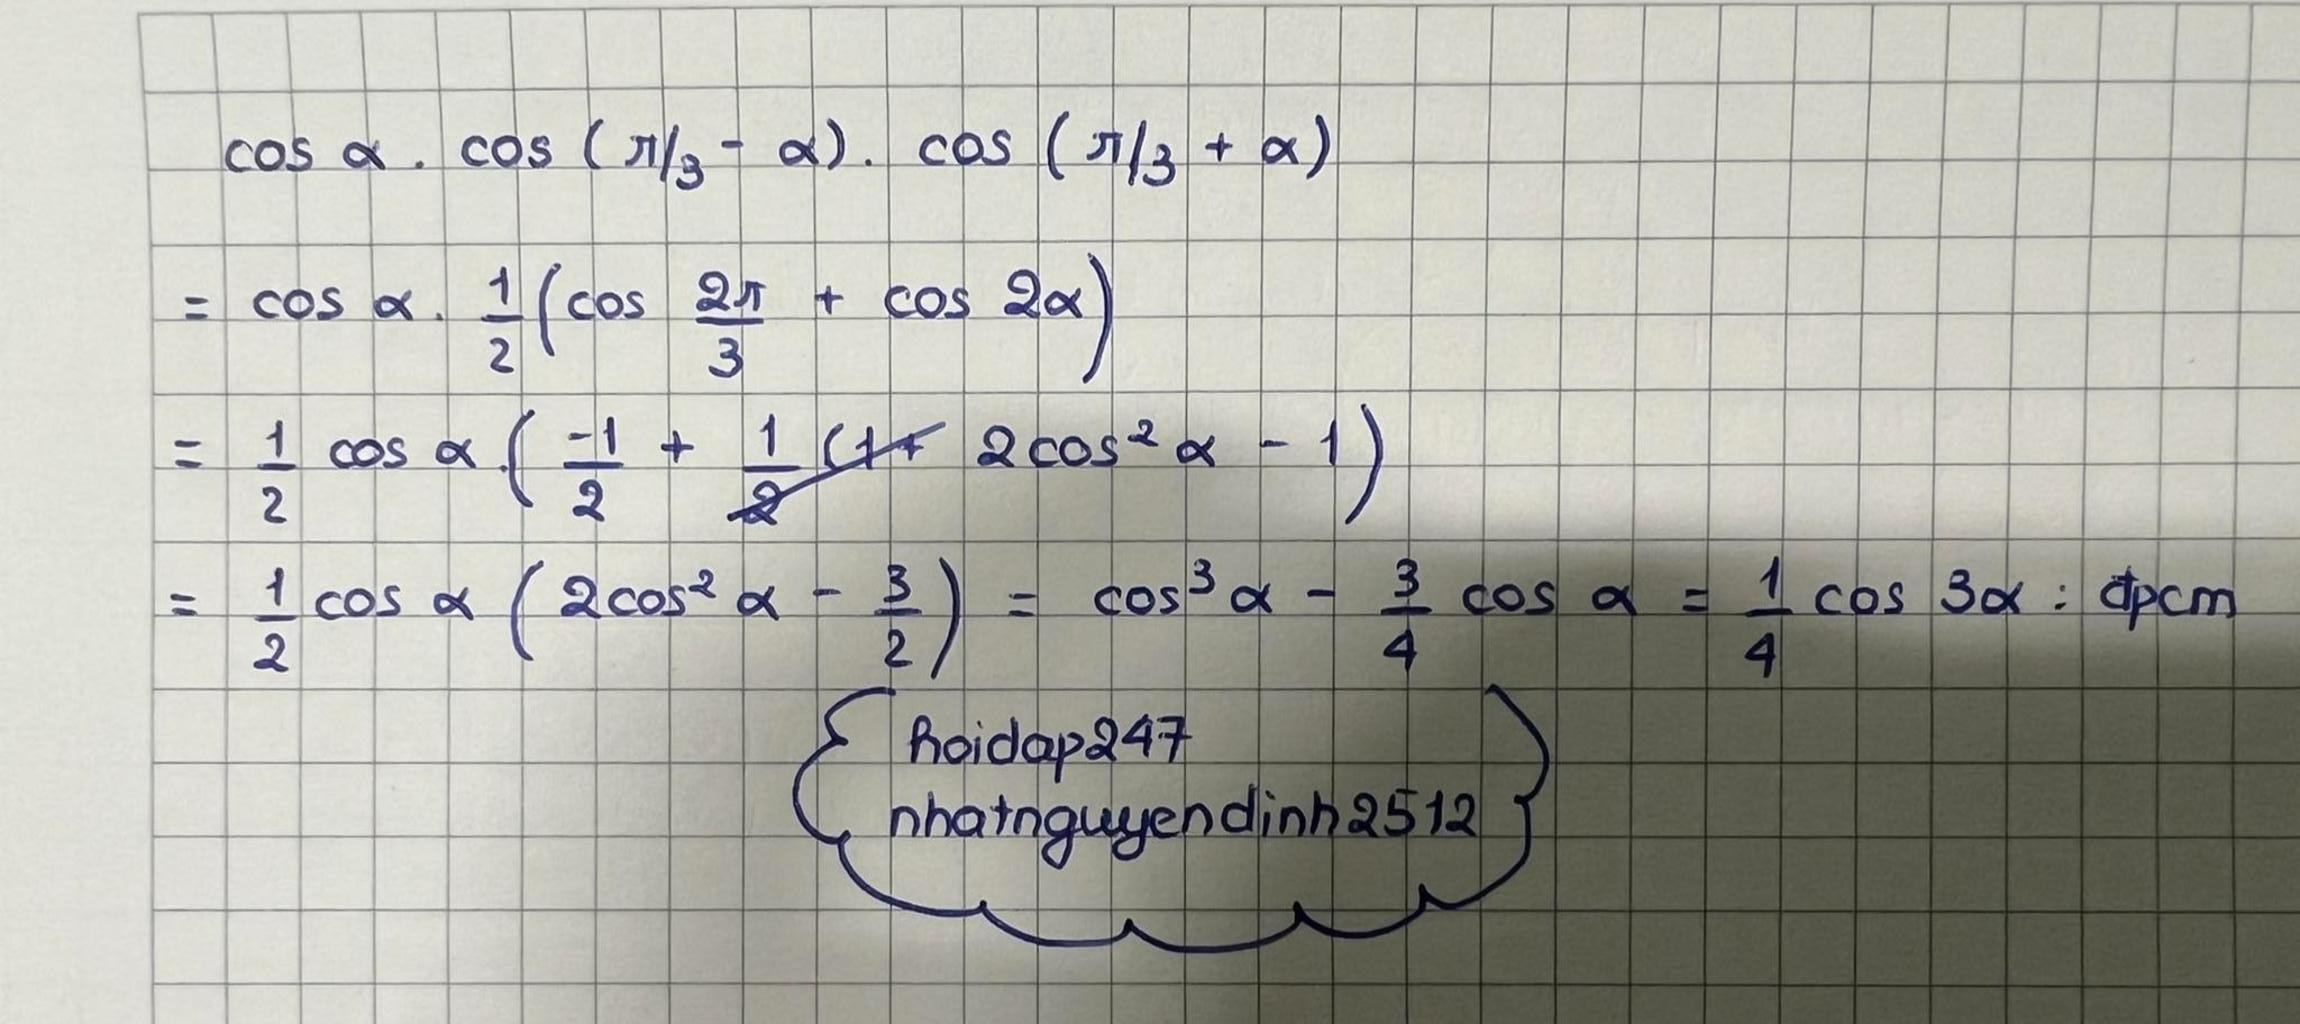 cos α . cos ( π/3 - α) . cos ( π/3 + α)
= cos α . 1/2 (cos 2π/3 + cos 2α)
= 1/2 cos α . ( -1/2 + 1/2 (1+ 2cos² α - 1)
= 1/2 cos α ( 2cos² α - 3/2 ) = cos³ α - 3/4 cos α = 1/4 cos 3α : đpcm
hoidap247
nhatnguyendinh2512